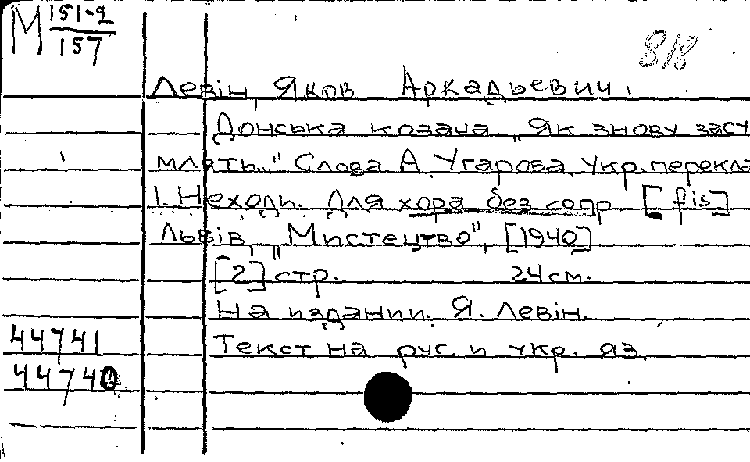 М 151-2
157
818
Левін, Яков Аркадьевич.
Донська козача „Як знову засу
млять..." Слова А. Угарова. Укр. перекла
І. Неходи. Для хора без сопр. [fis]
Львів, „Мистецтво", [1940]
[2] стр. 24 см.
На издании: Я. Левін.
44741
Текст на рус. и укр. яз.
44740